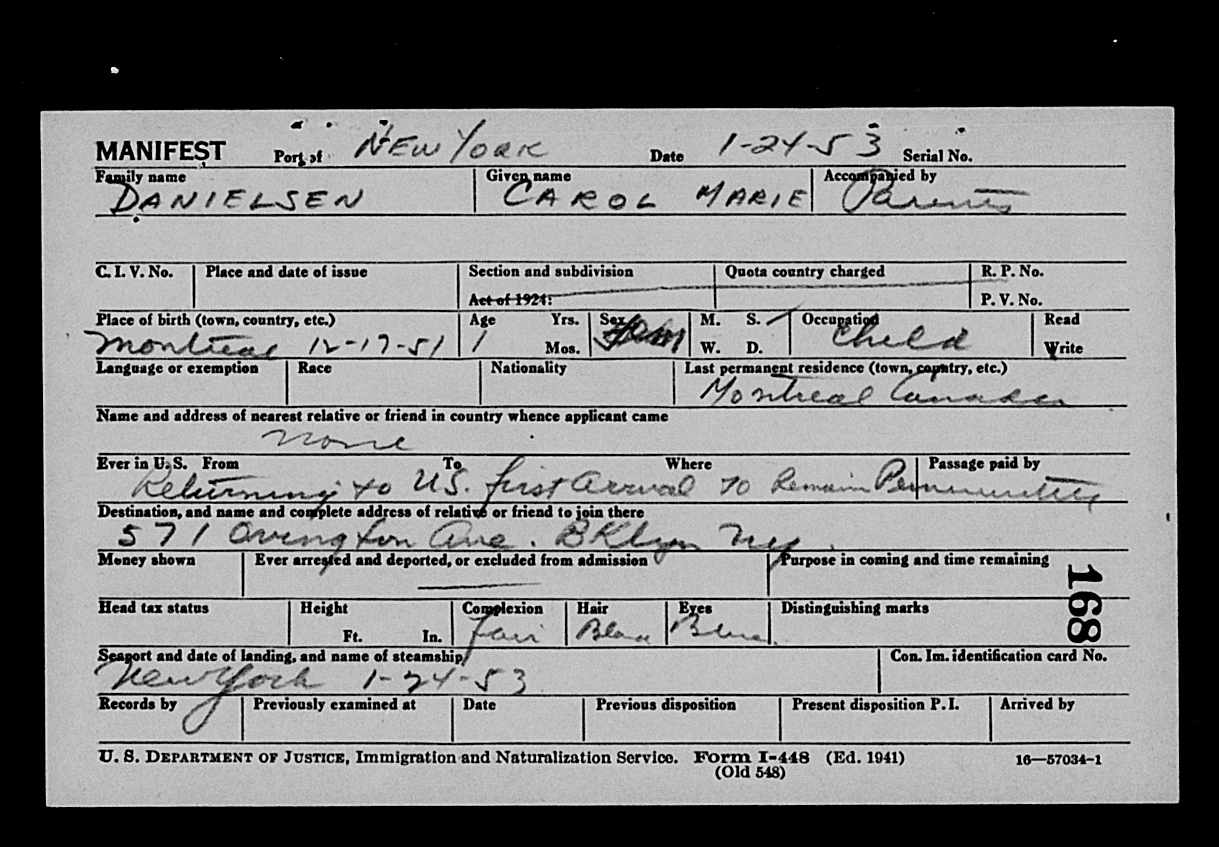 MANIFEST Port of NEW YORK Date 1-24-53 Serial No.
Family name Given name Accompanied by
DANIELSEN CAROL MARIE Parents
C. I. V. No. Place and date of issue Section and subdivision Quota country charged R. P. No.
Act of 1924: P. V. No.
Place of birth (town, country, etc.) Age Yrs. Sex M. S. Occupation Read
Montreal 12-17-51 1 Mos. Fem W. D. Child Write
Language or exemption Race Nationality Last permanent residence (town, country, etc.)
Montreal Canada
Name and address of nearest relative or friend in country whence applicant came
none
Ever in U. S. From To Where Passage paid by
Returning to U.S. first arrival to Remain Permanently
Destination, and name and complete address of relative or friend to join there
571 Ovington Ave. BKlyn NY.
Money shown Ever arrested and deported, or excluded from admission Purpose in coming and time remaining
168
Head tax status Height Complexion Hair Eyes Distinguishing marks
Ft. In. fair Blue
Seaport and date of landing, and name of steamship Con. Im. identification card No.
New York 1-24-53
Records by Previously examined at Date Previous disposition Present disposition P. I. Arrived by
U. S. DEPARTMENT OF JUSTICE, Immigration and Naturalization Service. Form I-448 (Ed. 1941) 16—57034-1
(Old 548)